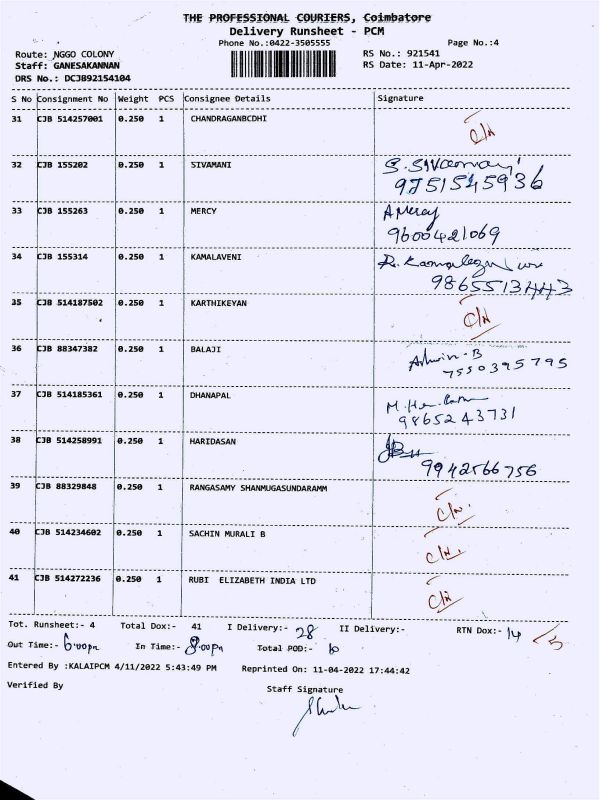 THE PROFESSIONAL COURIERS, Coimbatore
Delivery Runsheet - PCM
Phone No.:0422-3505555
Page No.:4
Route: NGGO COLONY
RS No.: 921541
Staff: GANESAKANNAN
RS Date: 11-Apr-2022
DRS No.: DCJB92154104
S No Consignment No Weight PCS Consignee Details Signature
31 CJB 514257001 0.250 1 CHANDRAGANBCDHI
32 CJB 155202 0.250 1 SIVAMANI S. SIVAmani
9751545936
33 CJB 155263 0.250 1 MERCY A Mercy
9600421069
34 CJB 155314 0.250 1 KAMALAVENI
9865513443
35 CJB 514187502 0.250 1 KARTHIKEYAN
36 CJB 88347382 0.250 1 BALAJI Ashwin-B
7550395795
37 CJB 514185361 0.250 1 DHANAPAL
9865243731
38 CJB 514258991 0.250 1 HARIDASAN
9942566756
39 CJB 88329848 0.250 1 RANGASAMY SHANMUGASUNDARAMM
40 CJB 514234602 0.250 1 SACHIN MURALI B
41 CJB 514272236 0.250 1 RUBI ELIZABETH INDIA LTD
Tot. Runsheet:- 4 Total Dox:- 41 I Delivery:- 28 II Delivery:- RTN Dox:- 14
Out Time:- 6.00pm In Time:- 8.00pm Total POD:-
Entered By :KALAIPCM 4/11/2022 5:43:49 PM Reprinted On: 11-04-2022 17:44:42
Verified By
Staff Signature